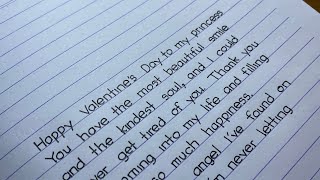 Happy Valentine's Day to my princess
You have the most beautiful smile
and the kindest soul, and I could
ver get tired of you. Thank you
ming into my life and filling
so much happiness.
angel I've found on
m never letting